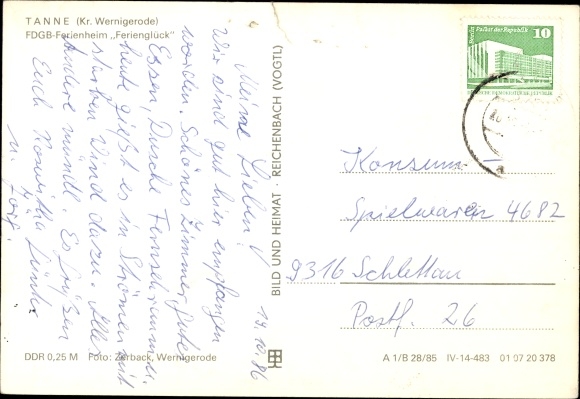 TANNE (Kr. Wernigerode)
FDGB-Ferienheim „Ferienglück"
19.10.86
Meine Lieben!
Wir sind gut hier empfangen
worden. Schönes Zimmer, gutes
Essen, Dusche Fernsehraum u.
heute gießt es in Strömen mit
starken Wind dazu. Alles
Andere mündl. Es grüßen
Euch Roswitha
u. Jörg.
BILD UND HEIMAT · REICHENBACH (VOGTL)
Berlin Palast der Republik
10
DEUTSCHE DEMOKRATISCHE REPUBLIK
Konsum
Spielwaren 4682
9316 Schlettau
Postf. 26
DDR 0,25 M Foto: Zerback, Wernigerode
A 1/B 28/85 IV-14-483 01 07 20 378